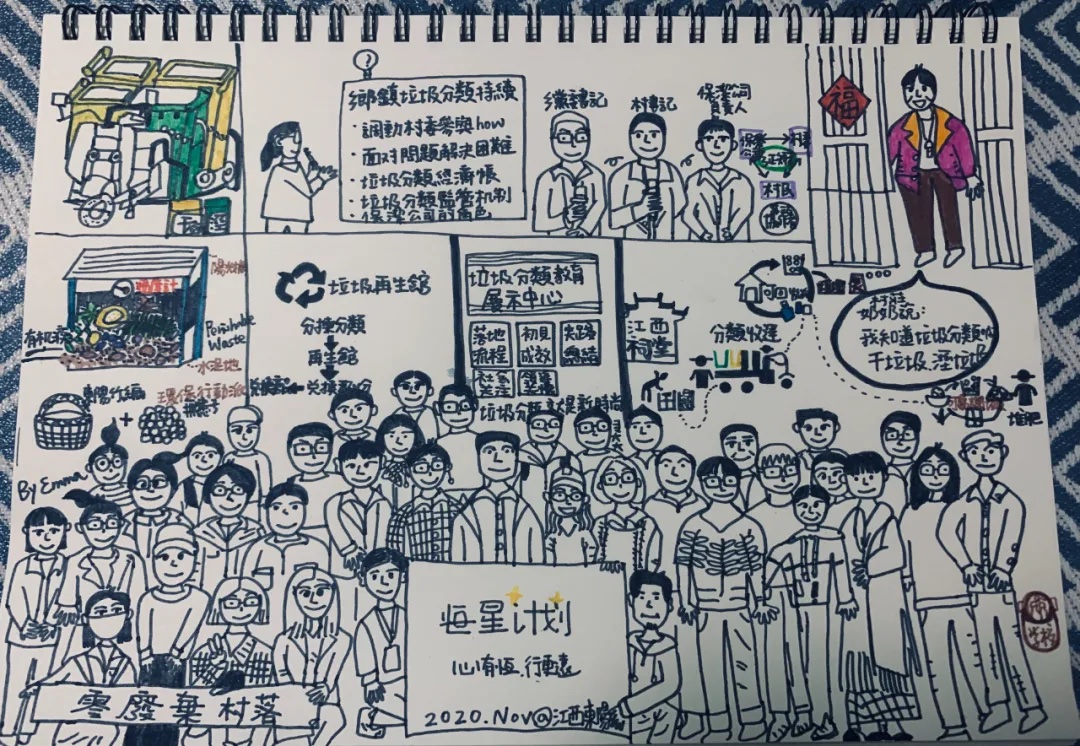 鄉鎮垃圾分類持續
·調動村委參與how
·面对問題解決困難
·垃圾分類經濟帳
·垃圾分類監管机制
·保潔公司的角色
鎮書記
村書記
保潔公司
負責人
村民
福
陽光棚
溫度計
有机
Perishable
Waste
水泥地
垃圾再生館
分揀分類
再生館
兑換積分
垃圾分類教育
展示中心
落地
流程
初見
成效
垃圾分類就是新時尚
江西
祠堂
田園
分類收運
可回收
奶奶説：
我知道垃圾分類
干垃圾、溼垃圾
堆肥
東陽行動派
環保行動派
+
By Emma
恒星计划
心有恆.行更遠
2020.Nov@江西東陽
零廢棄村落